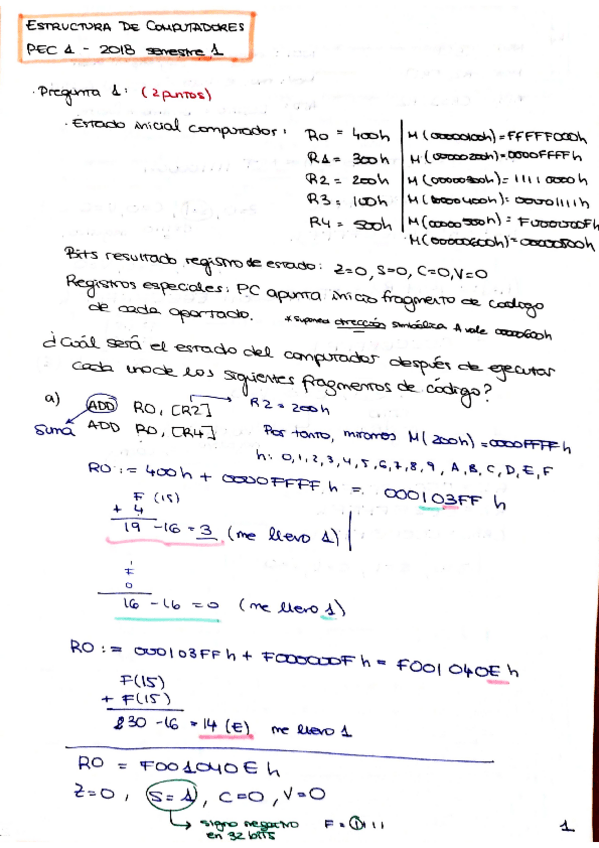 ESTRUCTURA DE COMPUTADORES
PEC 1 - 2018 semestre 1
· Pregunta 1: (2 puntos)
· Estado inicial computador:
R0 = 400h
R1 = 300h
R2 = 200h
R3 = 100h
R4 = 500h
M(00000100h)=FFFFF000h
M(00000200h)=0000FFFFh
M(00000300h)=11110000h
M(00000400h)=00001111h
M(00000500h)=F000000Fh
M(00000600h)=00000500h
Bits resultado registro de estado: Z=0, S=0, C=0, V=0
Registros especiales: PC apunta inicio fragmento de código
de cada apartado. *suponea dirección simbólica A vale 00000600h
¿Cuál será el estado del computador después de ejecutar
cada uno de los siguientes fragmentos de código?
a) ADD R0, [R2] R2 = 200h
suma ADD R0, [R4] Por tanto, miramos M(200h)=0000FFFFh
h: 0,1,2,3,4,5,6,7,8,9, A,B,C,D,E,F
R0 := 400h + 0000FFFFh = 000103FF h
F (15)
+ 4
19 -16 = 3 (me llevo 1)
1
F
0
16 - 16 = 0 (me llevo 1)
R0 := 000103FFh + F000000Fh = F001040E h
F(15)
+ F(15)
30 -16 = 14 (E) me llevo 1
R0 = F001040E h
Z=0, S=1, C=0, V=0
signo negativo F = 1111
en 32 bits
1